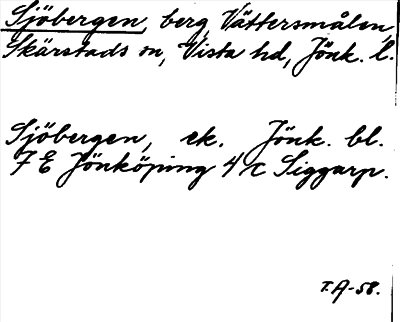 Sjöbergen, berg, Vättersmålen,
Skärstads sn, Vista hd, Jönk. l.
Sjöbergen, ek. Jönk. bl.
7 E Jönköping 4 c Siggarp.
T.A-58.